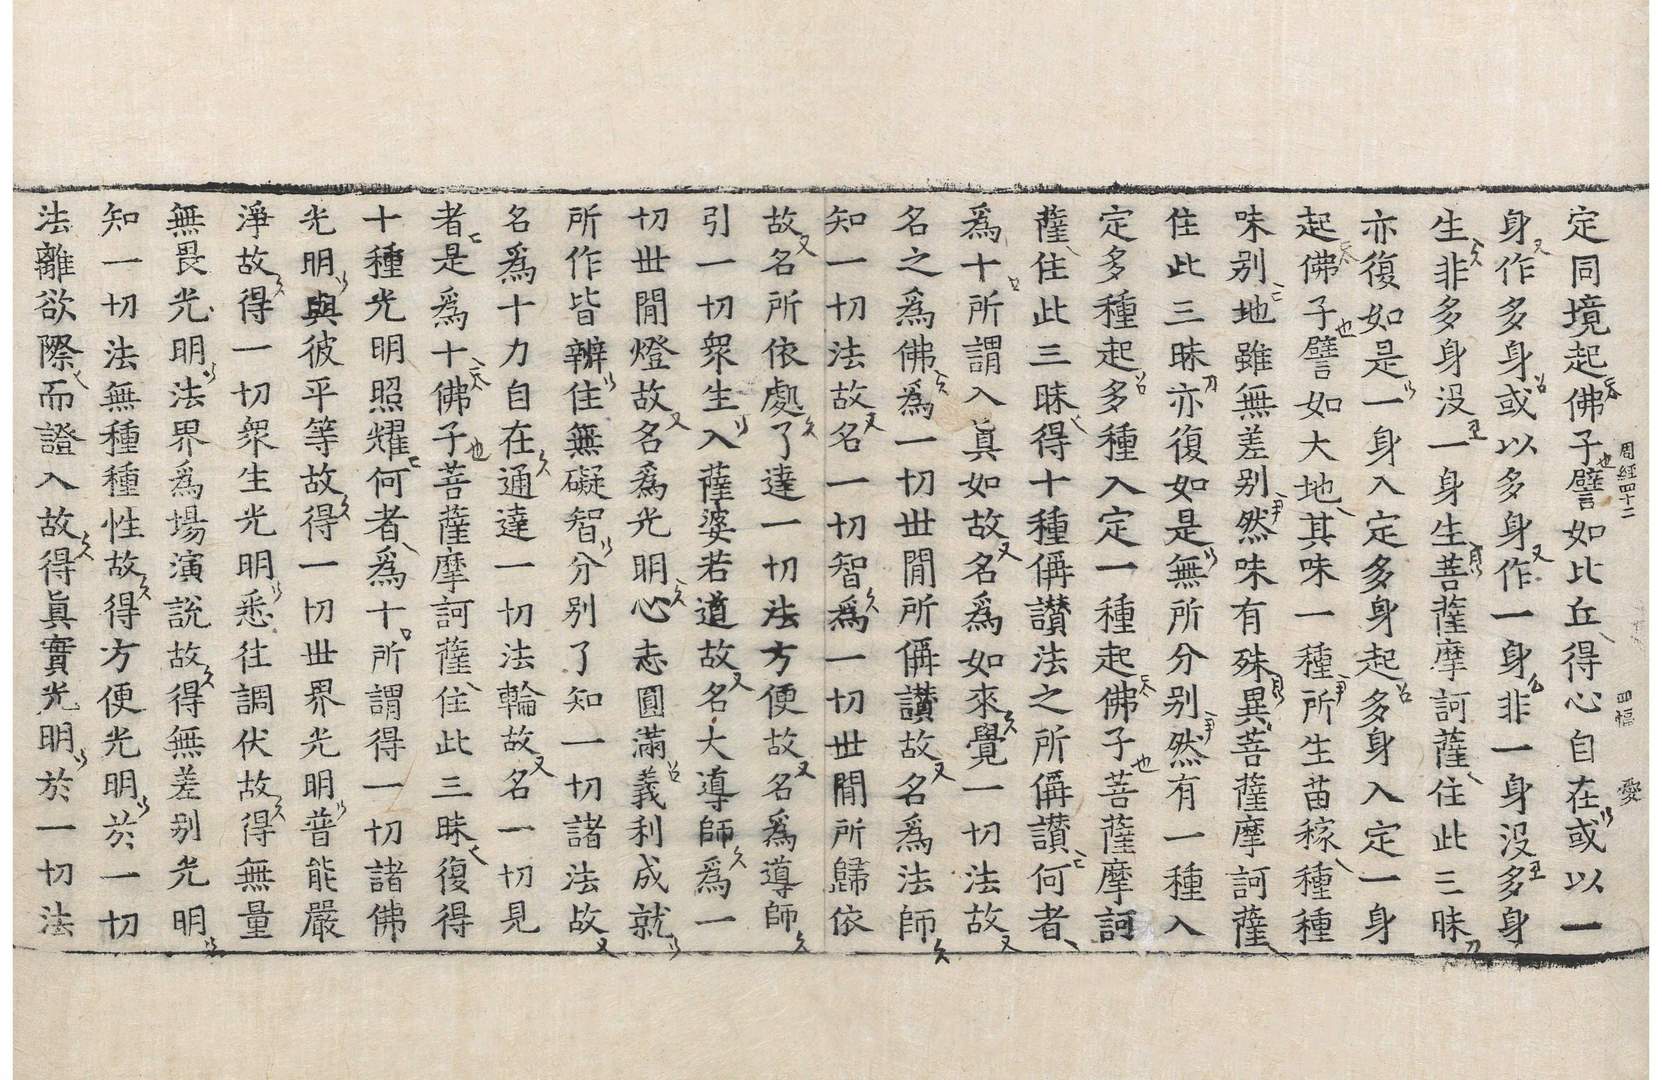 周經四十二 四幅
定同境起佛子譬如比丘得心自在或以一
身作多身或以多身作一身非一身沒多身
生非多身沒一身生菩薩摩訶薩住此三昧
亦復如是一身入定多身起多身入定一身
起佛子譬如大地其味一種所生苗稼種種
味别地雖無差别然味有殊異菩薩摩訶薩
住此三昧亦復如是無所分别然有一種入
定多種起多種入定一種起佛子菩薩摩訶
薩住此三昧得十種稱讃法之所稱讃何者
爲十所謂入眞如故名爲如來覺一切法故
名之爲佛爲一切世閒所稱讃故名爲法師
知一切法故名一切智爲一切世閒所歸依
故名所依處了達一切法方便故名爲導師
引一切衆生入薩婆若道故名大導師爲一
切世閒燈故名爲光明心志圓滿義利成就
所作皆辦住無礙智分别了知一切諸法故
名爲十力自在通達一切法輪故名一切見
者是爲十佛子菩薩摩訶薩住此三昧復得
十種光明照耀何者爲十所謂得一切諸佛
光明與彼平等故得一切世界光明普能嚴
淨故得一切衆生光明悉往調伏故得無量
無畏光明法界爲場演說故得無差别光明
知一切法無種種性故得方便光明於一切
法離欲際而證入故得眞實光明於一切法